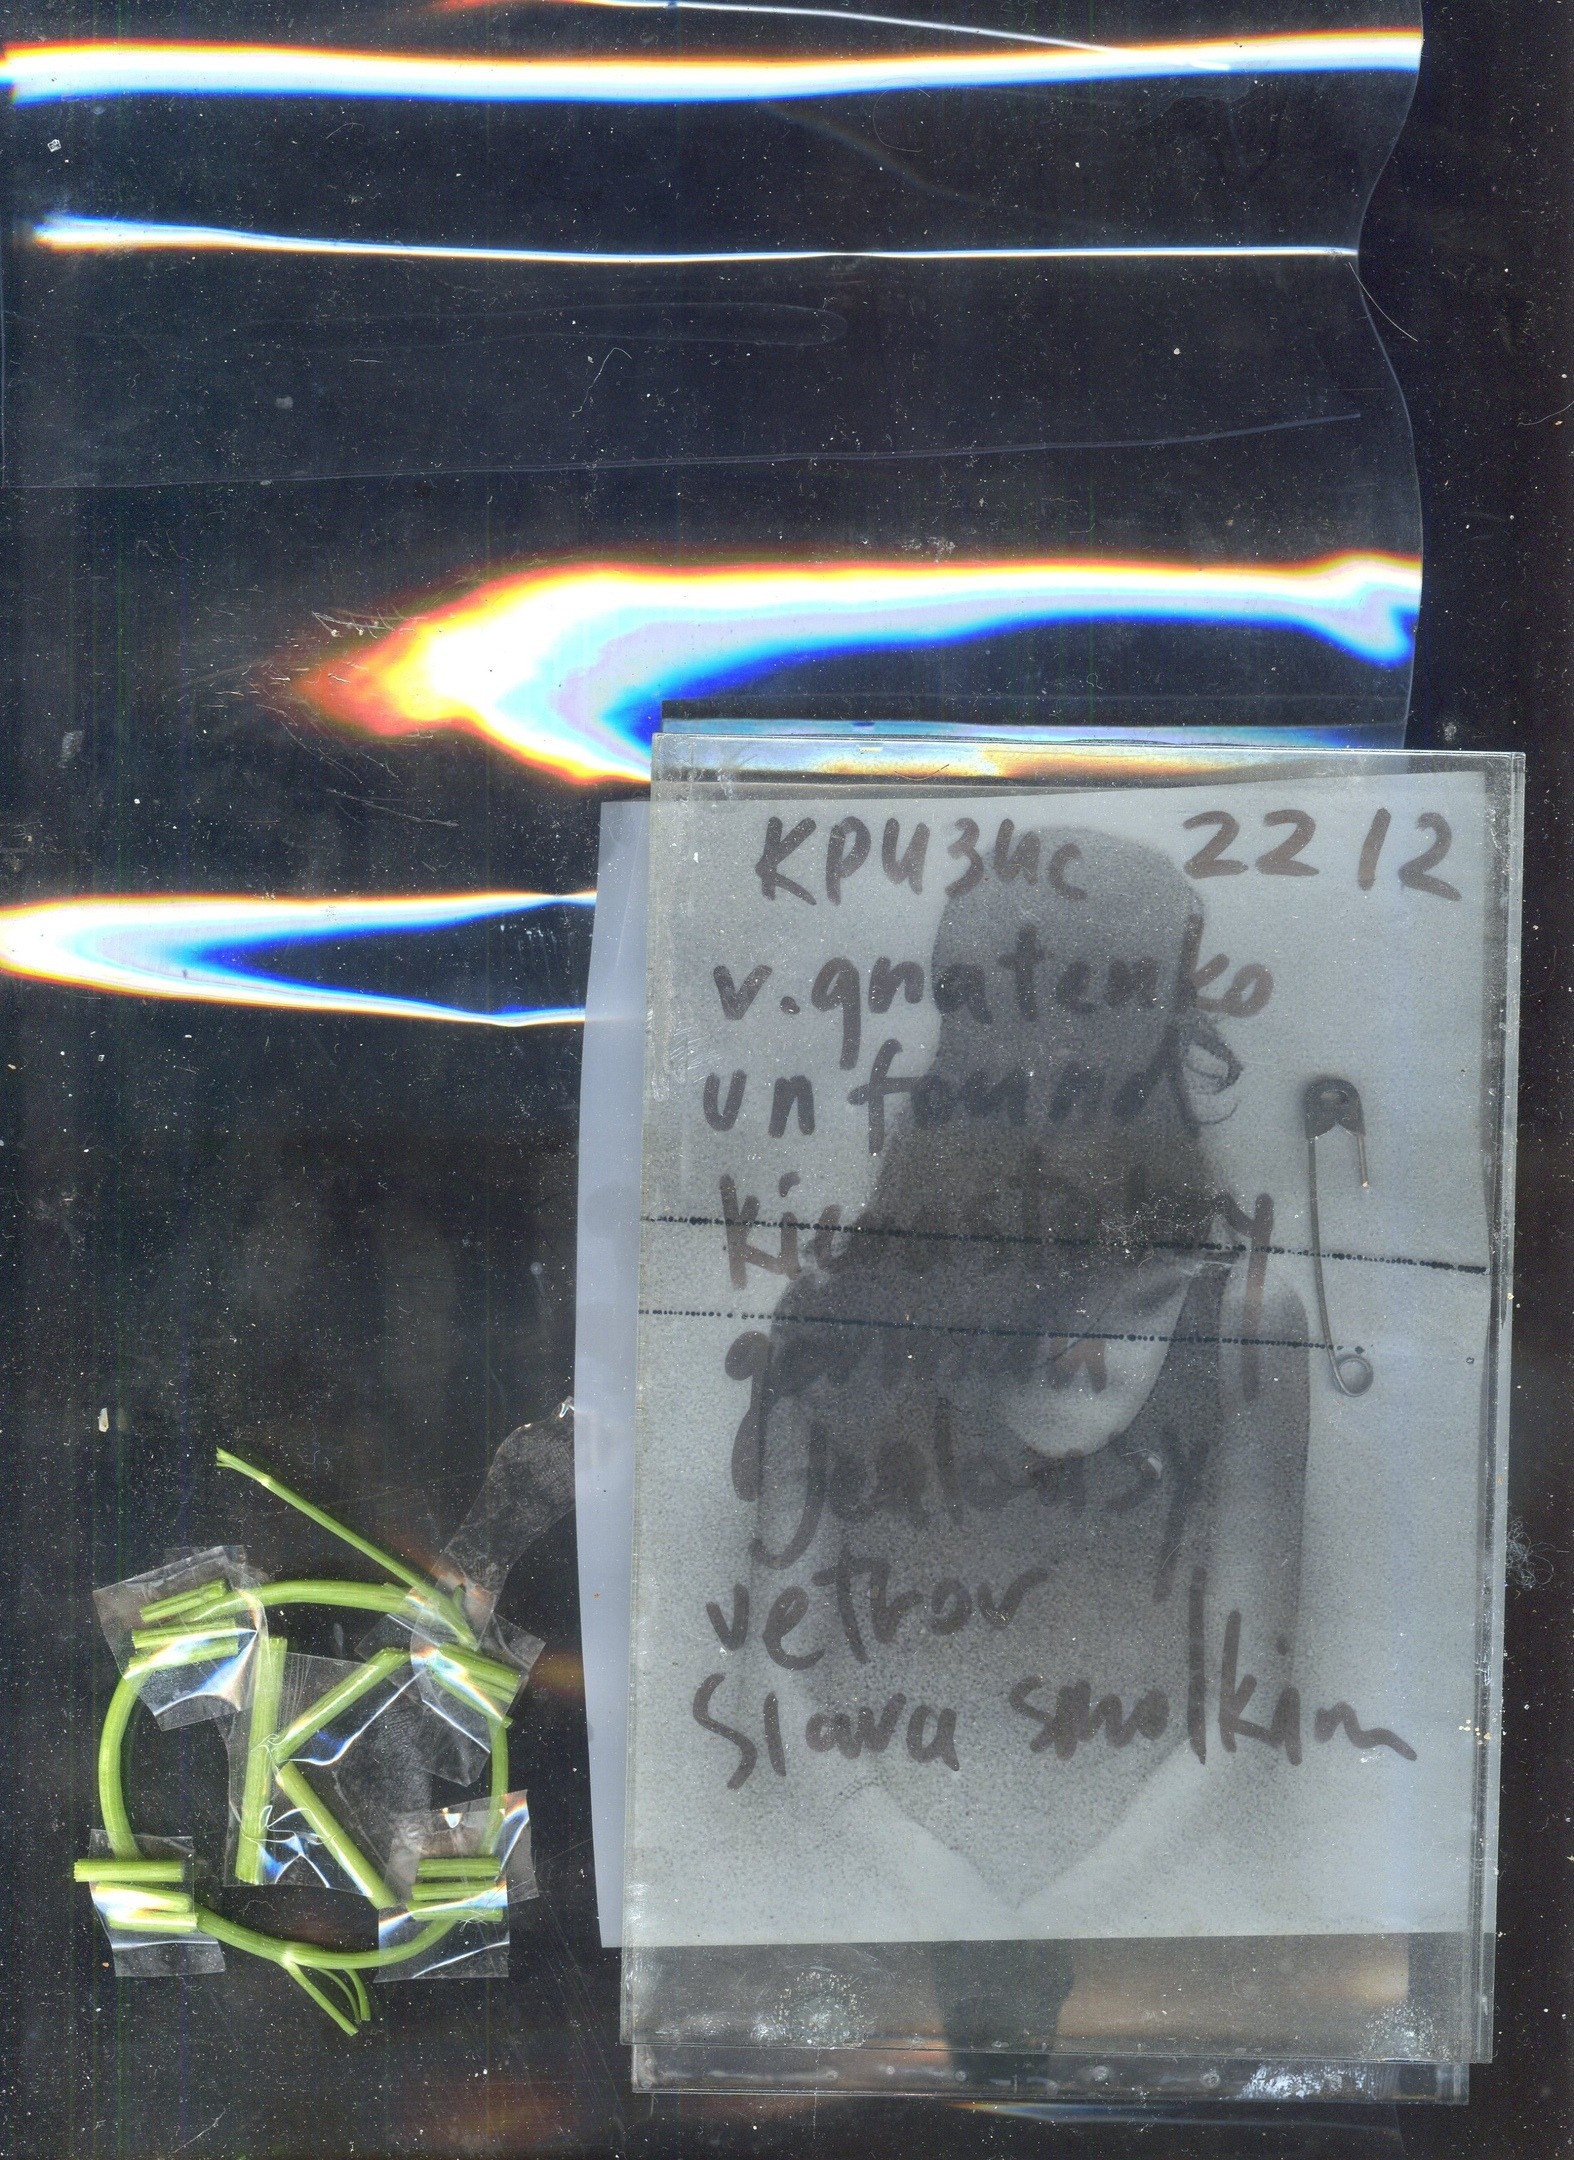 кризис 22 12
v. gnatenko
un found
jealousy
vetkov
Slava smolkin
K